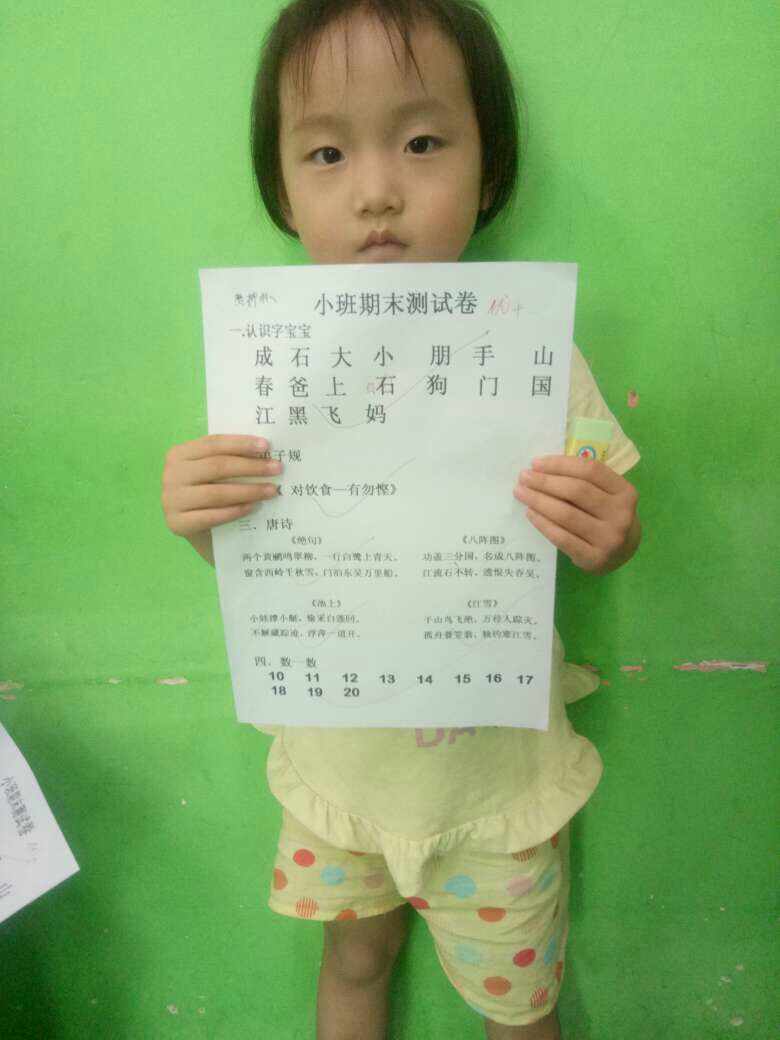 小班期末测试卷 优+
一.认识字宝宝
成 石 大 小 朋 手 山
春 爸 上 石 狗 门 国
江 黑 飞 妈
弟子规
《 对饮食—有勿悭》
三．唐诗
《绝句》 《八阵图》
两个黄鹂鸣翠柳，一行白鹭上青天。 功盖三分国，名成八阵图。
窗含西岭千秋雪，门泊东吴万里船。 江流石不转，遗恨失吞吴。
《池上》 《江雪》
小娃撑小艇，偷采白莲回。 千山鸟飞绝，万径人踪灭。
不解藏踪迹，浮萍一道开。 孤舟蓑笠翁，独钓寒江雪。
四．数一数
10 11 12 13 14 15 16 17
18 19 20
DA
小班期末测试卷